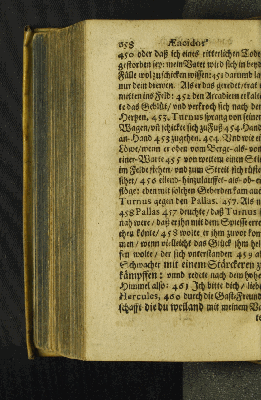 958 Æneidos
450 oder daß ich eines ritterlichen Tode
gestorben sey: mein Vater wird sich in beyde
Fälle wol zuschicken wissen: 451 darumb la
nur dein dräwen. Als er dis geredet / trat
mitten ins Feld: 452 den Arcadiern erkalte
te das Geblüt / und verkroch sich nach dem
Hertzen. 453. Turnus sprang von seinem
Wagen / un schicket sich zu Fuß 454 Hand
an-Hand 453 zugehen. 454. Und wie ein
Löwe / wenn er oben vom Berge-als-von
einer-Warte 455 von weitem einen Stier
im Felde stehen / und zum Streit sich rüsten
sihet / 456 eilend-hinzulauffet-als-ob-er
flöge: eben mit solchen Geberden kam auch
Turnus gegen den Pallas. 457. Als nu
458 Pallas 457 deuchte / daß Turnus
nah were / daß er ihn mit dem Spiesse errei-
chen könte / 458 wolte er ihm zuvor kom-
men / wenn vielleicht das Glück ihm hel-
fen wolte / der sich unterstanden 459 als
Schwacher mit einem Stärckeren zu
kämpffen: unnd redete nach dem hohen
Himmel also: 461 Ich bitte dich / lieber
Hercules, 460 durch die Gast-Freund-
schafft die du weiland mit meinem Va-
te